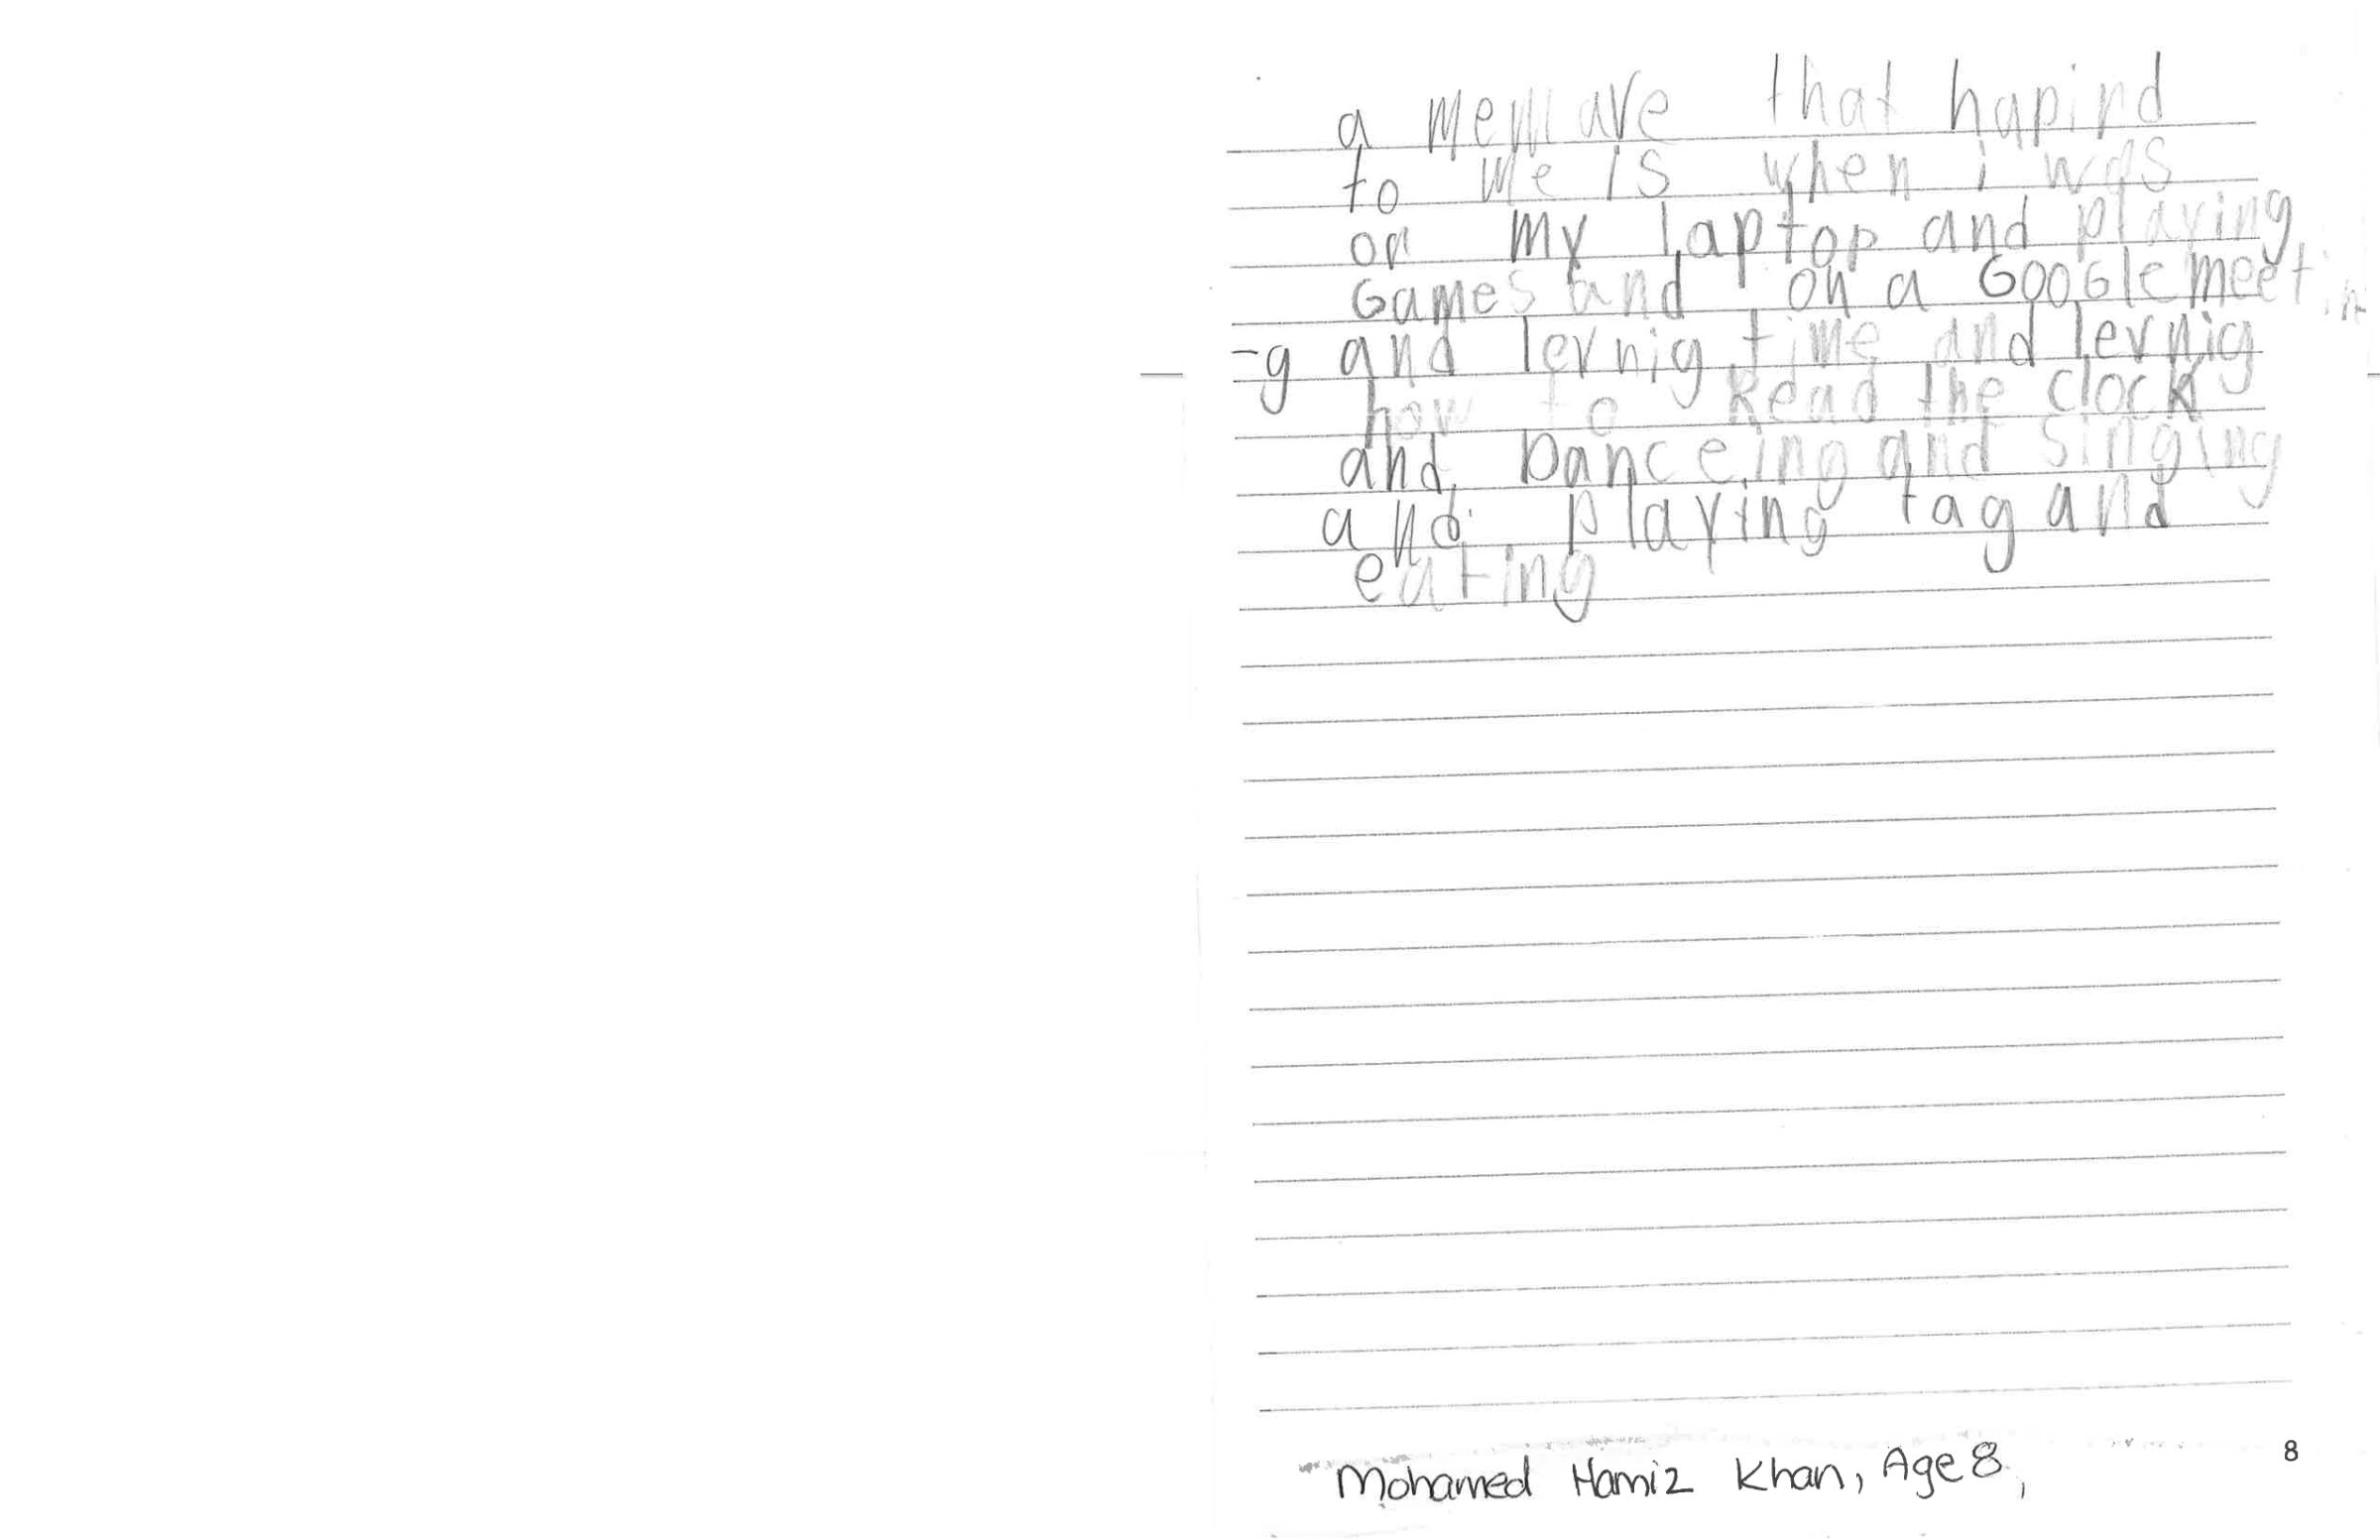 a memare that hapind
to me is when i was
on my laptop and playing
Games and on a GooGle meetin
-g and lernig time and lernig
how to Read the clock
and Danceing and singing
and playing tag and
eating
Mohamed Hamiz Khan, Age 8,
8